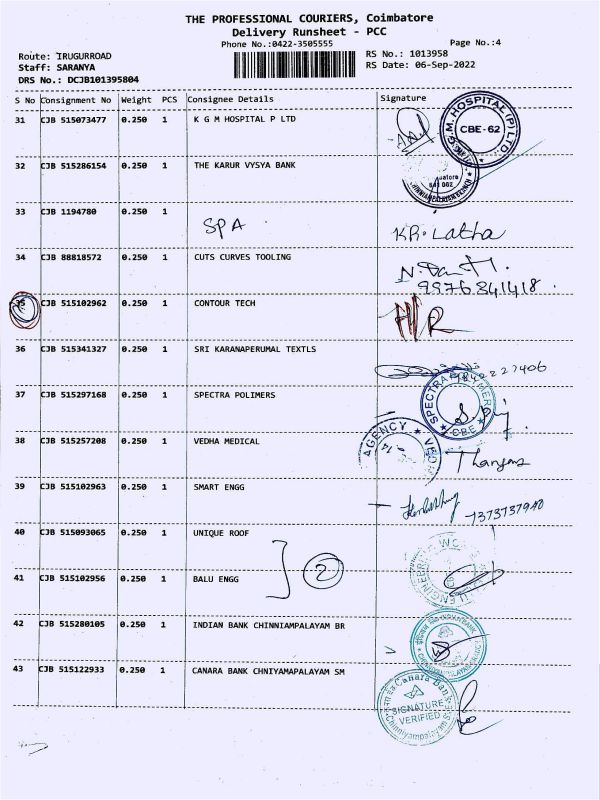 THE PROFESSIONAL COURIERS, Coimbatore
Delivery Runsheet - PCC
Phone No.:0422-3505555
Page No.:4
Route: IRUGURROAD
Staff: SARANYA
DRS No.: DCJB101395804
RS No.: 1013958
RS Date: 06-Sep-2022
S No Consignment No Weight PCS Consignee Details Signature
31 CJB 515073477 0.250 1 K G M HOSPITAL P LTD
K.G.M. HOSPITAL (P) LTD.
CBE-62
32 CJB 515286154 0.250 1 THE KARUR VYSYA BANK
641 062
33 CJB 1194780 0.250 1 SPA KR. Latha
34 CJB 88818572 0.250 1 CUTS CURVES TOOLING
9976341418
35 CJB 515102962 0.250 1 CONTOUR TECH
36 CJB 515341327 0.250 1 SRI KARANAPERUMAL TEXTLS
37 CJB 515297168 0.250 1 SPECTRA POLIMERS
SPECTRA POLYMERS
CBE
38 CJB 515257208 0.250 1 VEDHA MEDICAL
AGENCY
14
39 CJB 515102963 0.250 1 SMART ENGG
7373737940
40 CJB 515093065 0.250 1 UNIQUE ROOF
2
41 CJB 515102956 0.250 1 BALU ENGG
42 CJB 515280105 0.250 1 INDIAN BANK CHINNIAMPALAYAM BR
43 CJB 515122933 0.250 1 CANARA BANK CHNIYAMPALAYAM SM
Canara Bank
SIGNATURE
VERIFIED
Chinniyampalayam